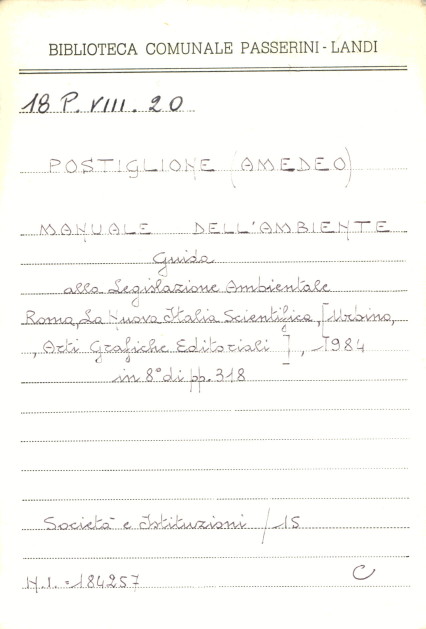 BIBLIOTECA COMUNALE PASSERINI - LANDI
18 P. VIII. 20
POSTIGLIONE (AMEDEO)
MANUALE DELL'AMBIENTE
Guida
alla Legislazione Ambientale
Roma, La Nuova Italia Scientifica, [Urbino,
, Arti Grafiche Editoriali], 1984
in 8° di pp. 318
Società e Istituzioni / 15
N.I. = 184257
C